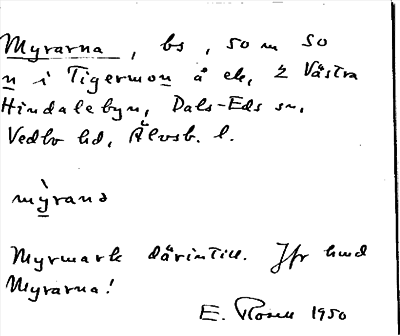 Myrarna, bs, som so
n i Tigermon å ek, 2 Västra
Hindalebyn, Dals-Eds sn,
Vedbo hd, Älvsb. l.
mỳrana
Myrmark därintill. Jfr
Myrarna!
E. Rosell 1950